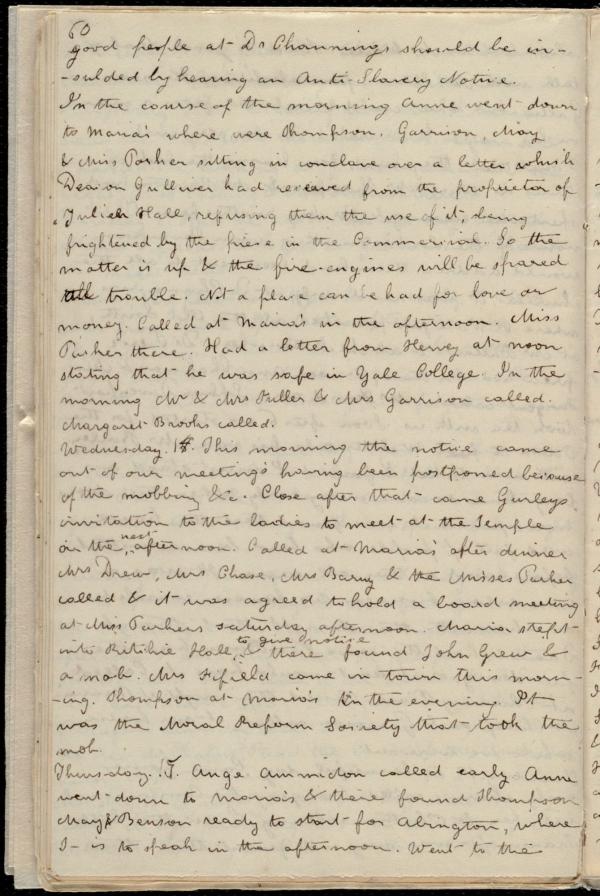 60
good people at Dr Channings should be in-
-sulded by hearing an Anti-Slavery Notice.
In the course of the morning Anne went down
to Maria's where were Thompson, Garrison, May
& Miss Parker sitting in conclave over a letter which
Deacon Gulliver had received from the proprietor of
Julien Hall, refusing them the use of it, being
frightened by the piece in the Commercial. So the
matter is up & the fire-engines will be spared
all trouble. Not a place can be had for love or
money. Called at Maria's in the afternoon. Miss
Parker there. Had a letter from Henry at noon
stating that he was safe in Yale College. In the
morning Mr & Mrs Fuller & Mrs Garrison called.
Margaret Brooks called.
Wednesday. 14. This morning the notice came
out of our meeting's having been postponed because
of the mobbing &c. Close after that came Gurleys
invitation to the ladies to meet at the Temple
on the next afternoon. Called at Maria's after dinner
Mrs Drew, Mrs Chase, Mrs Barny & the Misses Parker
called & it was agreed to hold a board meeting
at Miss Parkers saturday afternoon. Maria stept
into Ritchie Hall, to give notice & there found John Grew &
a mob. Mrs Fifield came in town this morn-
-ing. Thompson at Maria's in the evening. It
was the Moral Reform Society that took the
mob.
Thursday. 15. Ange Ammidon called early Anne
went down to Maria's & there found Thompson
May & Benson ready to start for Abington, where
T- is to speak in the afternoon. Went to the